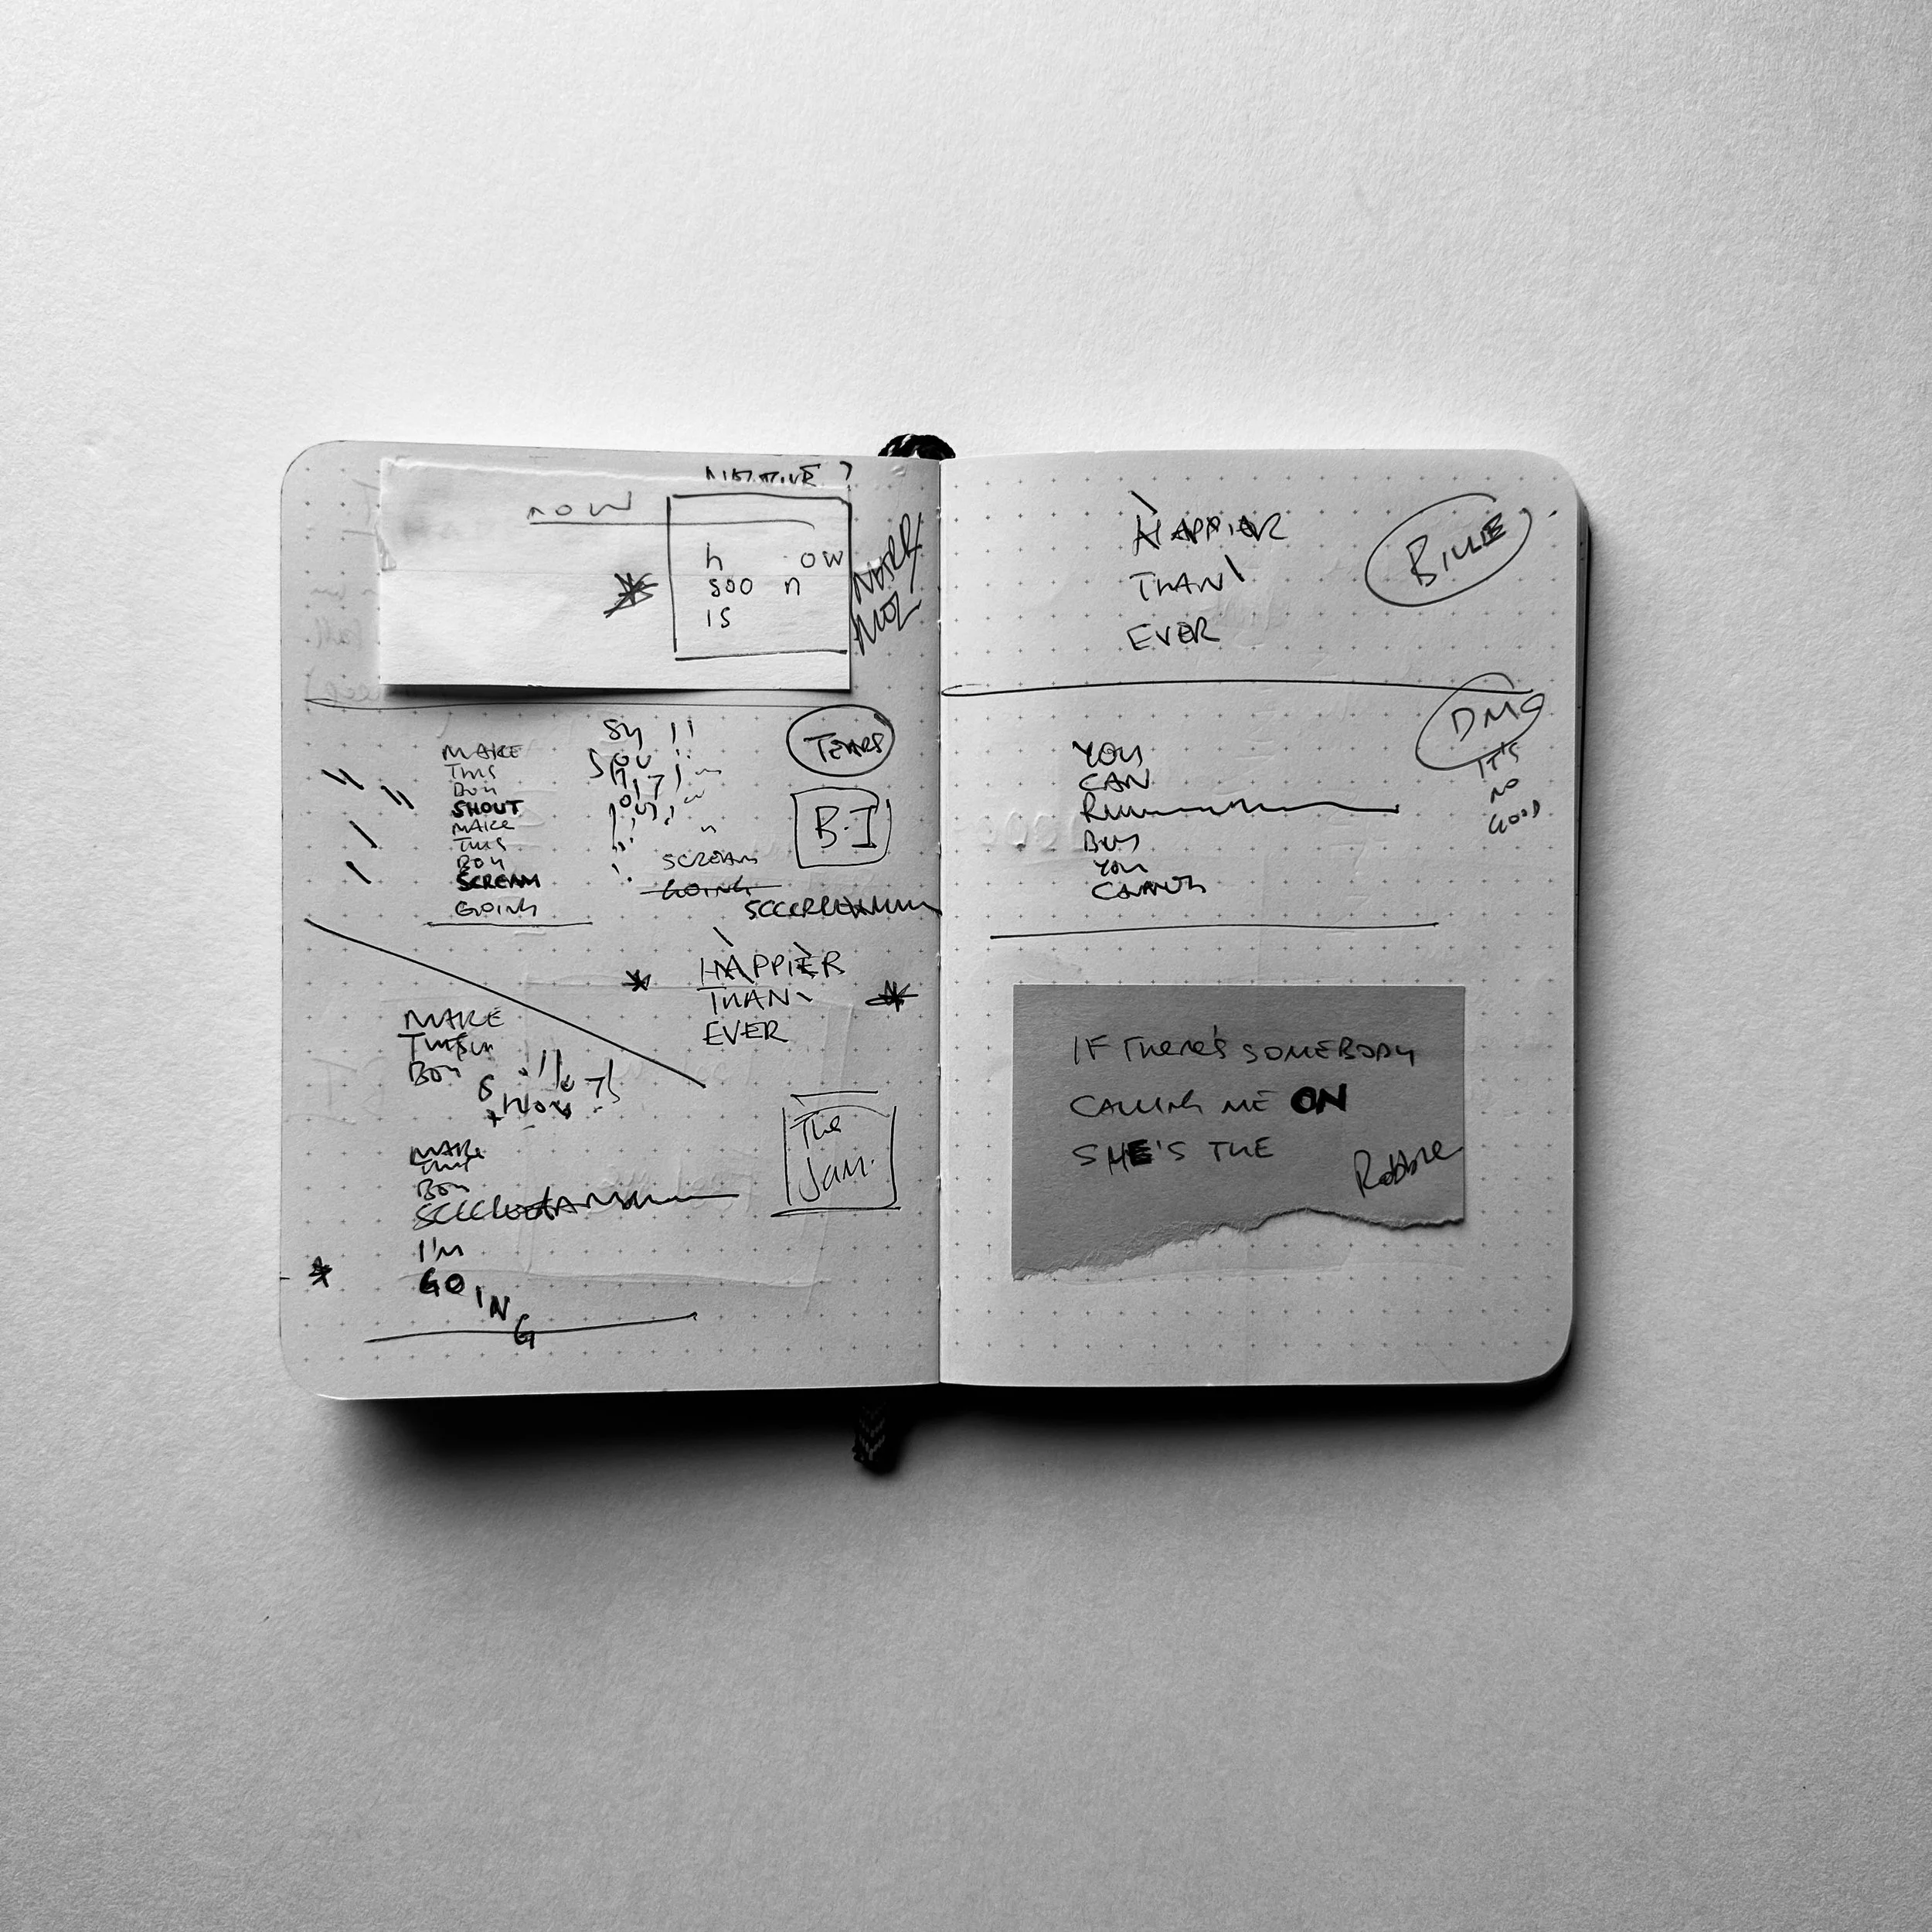 now
h ow
soo n
is
TEARS
B.I
MAKE
THIS
BOY
SHOUT
MAKE
THIS
BOY
SCREAM
GOING
SCREAM
GOING
HAPPIER
THAN
EVER
MAKE
BOY
MAKE
THIS
BOY
I'M
GOING
The
Jam.
HAPPIER
THAN
EVER
BILLIE
DMC
IT'S
NO
GOOD
YOU
CAN
BUT
YOU
IF THERE'S SOMEBODY
CALLING ME ON
SHE'S THE
Robbie